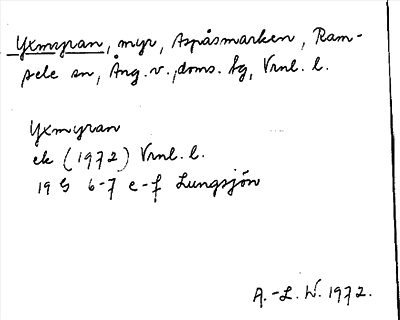 Yxmyran, myr, Aspåsmarken, Ram-
sele sn, Ång. v., doms. lg, Vrnl. l.
Yxmyran
ek (1972) Vrnl. l.
19 G 6-7 e-f Lungsjön
A.-L. W. 1972.